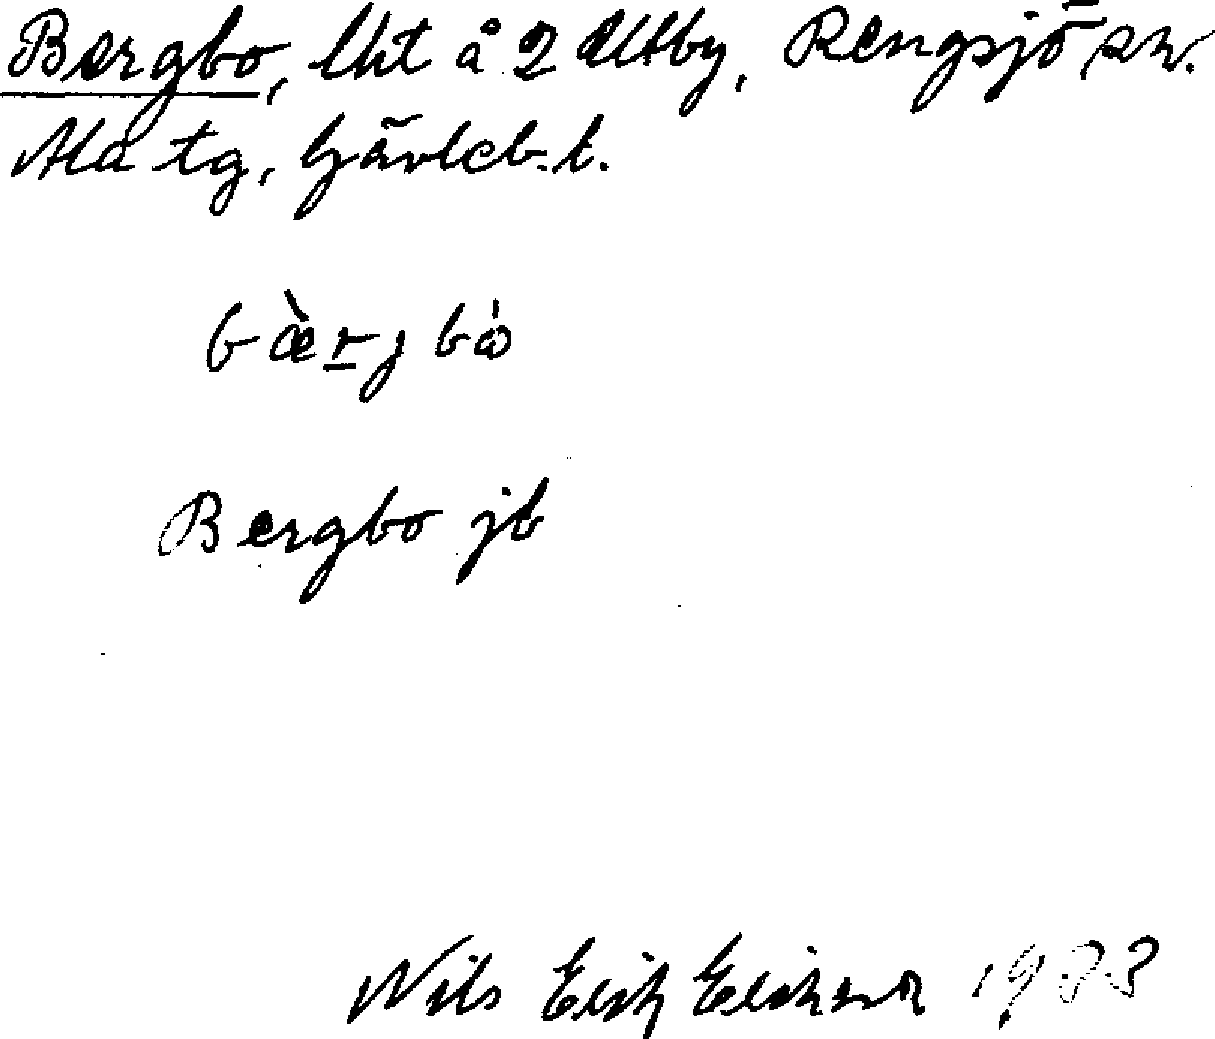 Bergbo, lht å 2 Utby, Rengsjö sn.
Ala tg, Gävleb. l.
bæ̀r̲jbω̇
Bergbo jb
Nils Erik Eriksson 1933